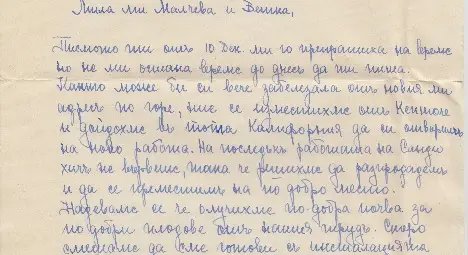 Мила ми Малчева иВетка,
Писмото ти отъ 10 Дек. ми го препратиха на време
но не ми остана време до днесъ да ти пиша.
Както може би си вече забелязала отъ новия ми
адресъ по горе, ние се преместихме отъ
и дойдохме въ топла Калифорния да си отваримъ
на ново работа. На последъкъ работата на Санди
хичъ не вървеше, така че решихме да разпродадем
и да се преместим на по добро место.
Надеваме се че случихме по-добра почва за
по добри плодове отъ нашия трудъ. Скоро
смятаме да сме готови съ инсталацията